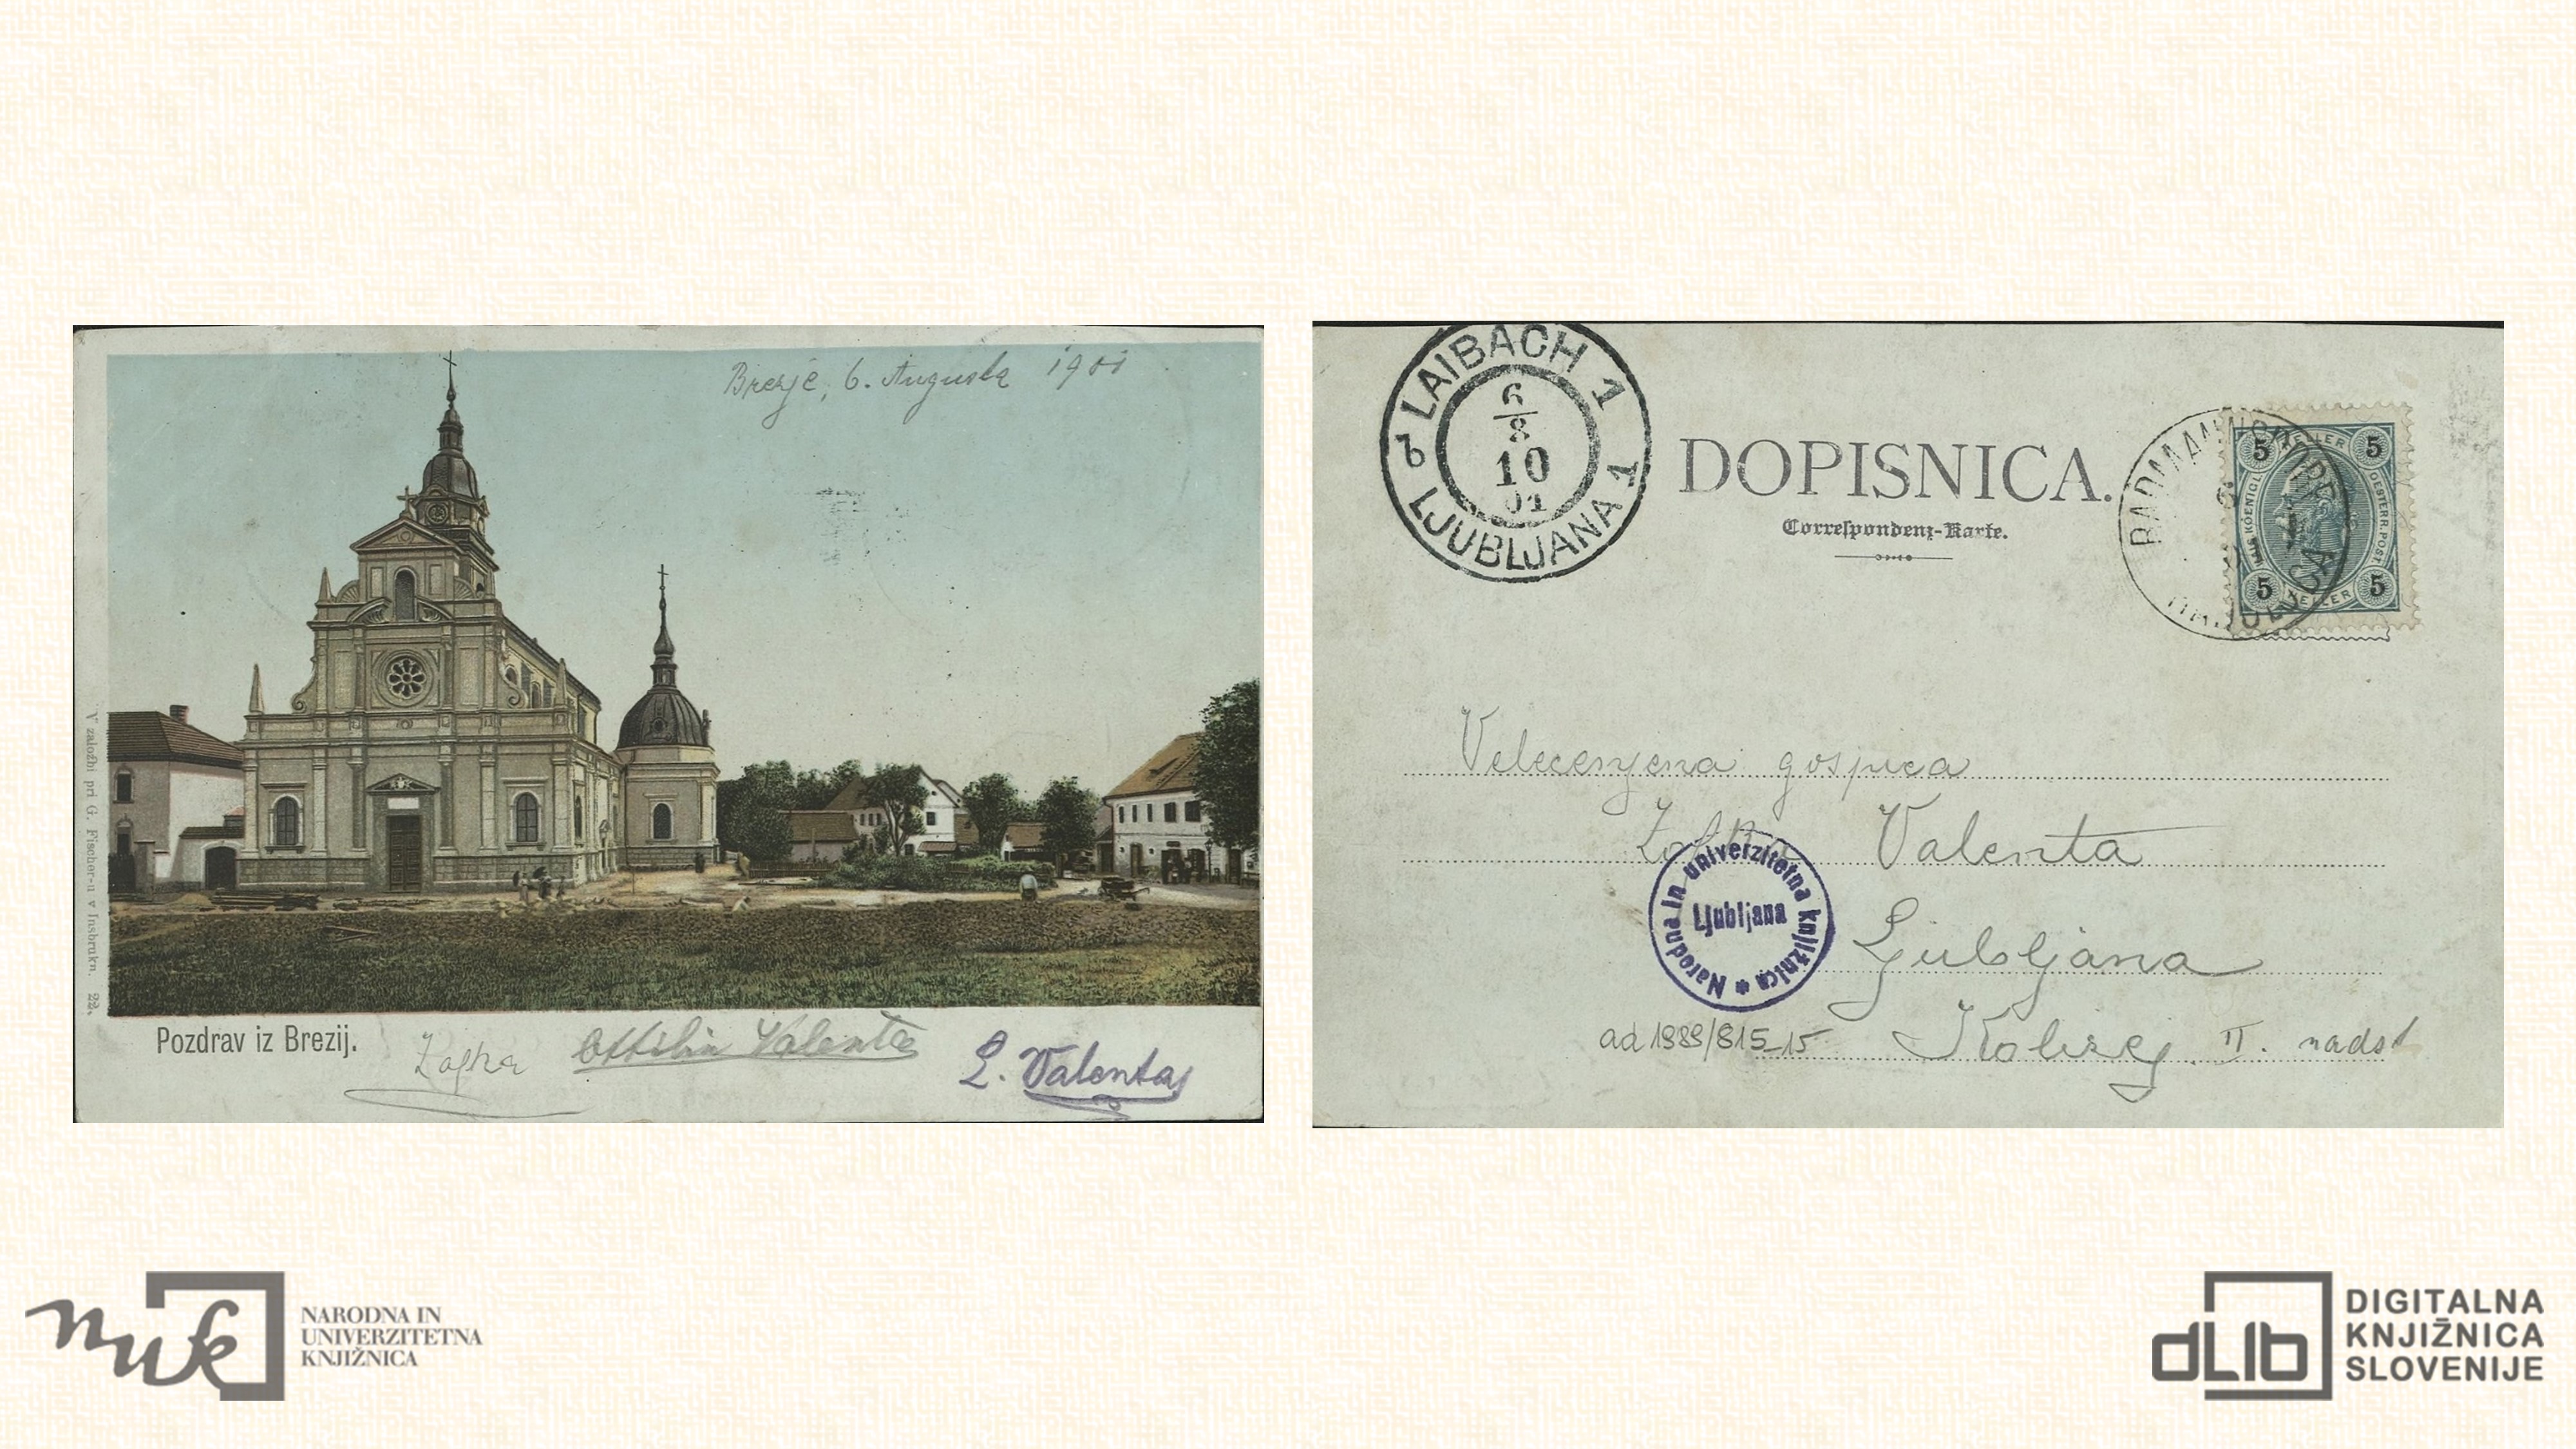 Brezje, 6. Augusta 1901
V založbi pri G. Fischer-u v Insbruku. 22.
Pozdrav iz Brezij.
Zofka
Ottilia Valenta
L. Valenta
LAIBACH 1
b 1
6
8
10
01
LJUBLJANA
DOPISNICA.
Correspondenz-Karte.
5 HELLER 5
OESTERR. POST
5 HELLER 5
Velecenjena gospica
Valenta
Ljubljana
Kolizej. II. nadst
Narodna in univerzitetna knjižnica *
Ljubljana
ad 1989/815_15
nuk
NARODNA IN
UNIVERZITETNA
KNJIŽNICA
dLib
DIGITALNA
KNJIŽNICA
SLOVENIJE